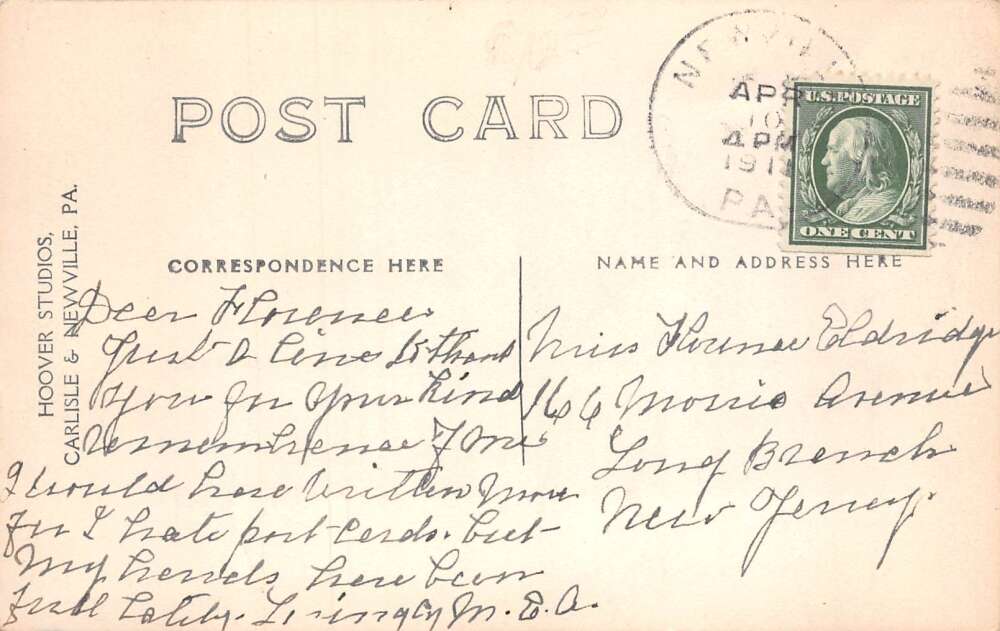 POST CARD
NEWVIL
APR
10
4 PM
191
PA
U.S. POSTAGE
ONE CENT
HOOVER STUDIOS,
CARLISLE & NEWVILLE, PA.
CORRESPONDENCE HERE
NAME AND ADDRESS HERE
Dear Florence
Just a line to thank
you for your kind
remembrance of me
I would have written more
for I hate post cards. but
My hands have been
full lately. Lovingly M. E. A.
Miss Florence Eldridge
166 Morris Avenue
Long Branch
New Jersey.